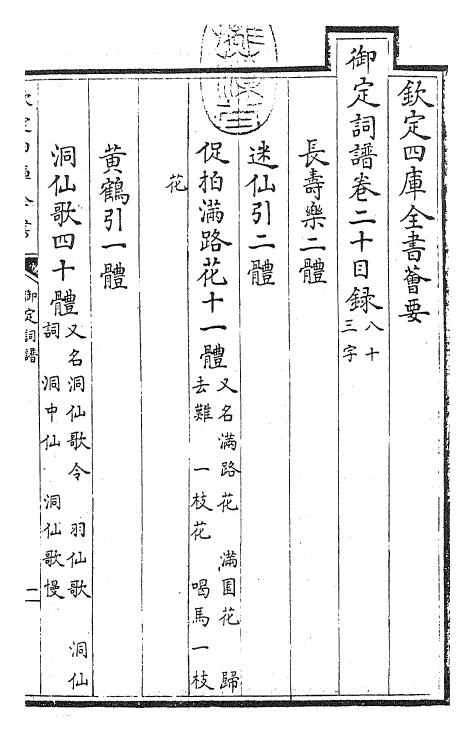 欽定四庫全書薈要
御定詞譜卷二十目録八十三字
長壽樂二體
迷仙引二體
促拍滿路花十一體又名滿路花 滿園花 歸去難 一枝花 喝馬一枝
花
黃鶴引一體
洞仙歌四十體又名洞仙歌令 羽仙歌 洞仙詞 洞中仙 洞仙歌慢
御定詞譜